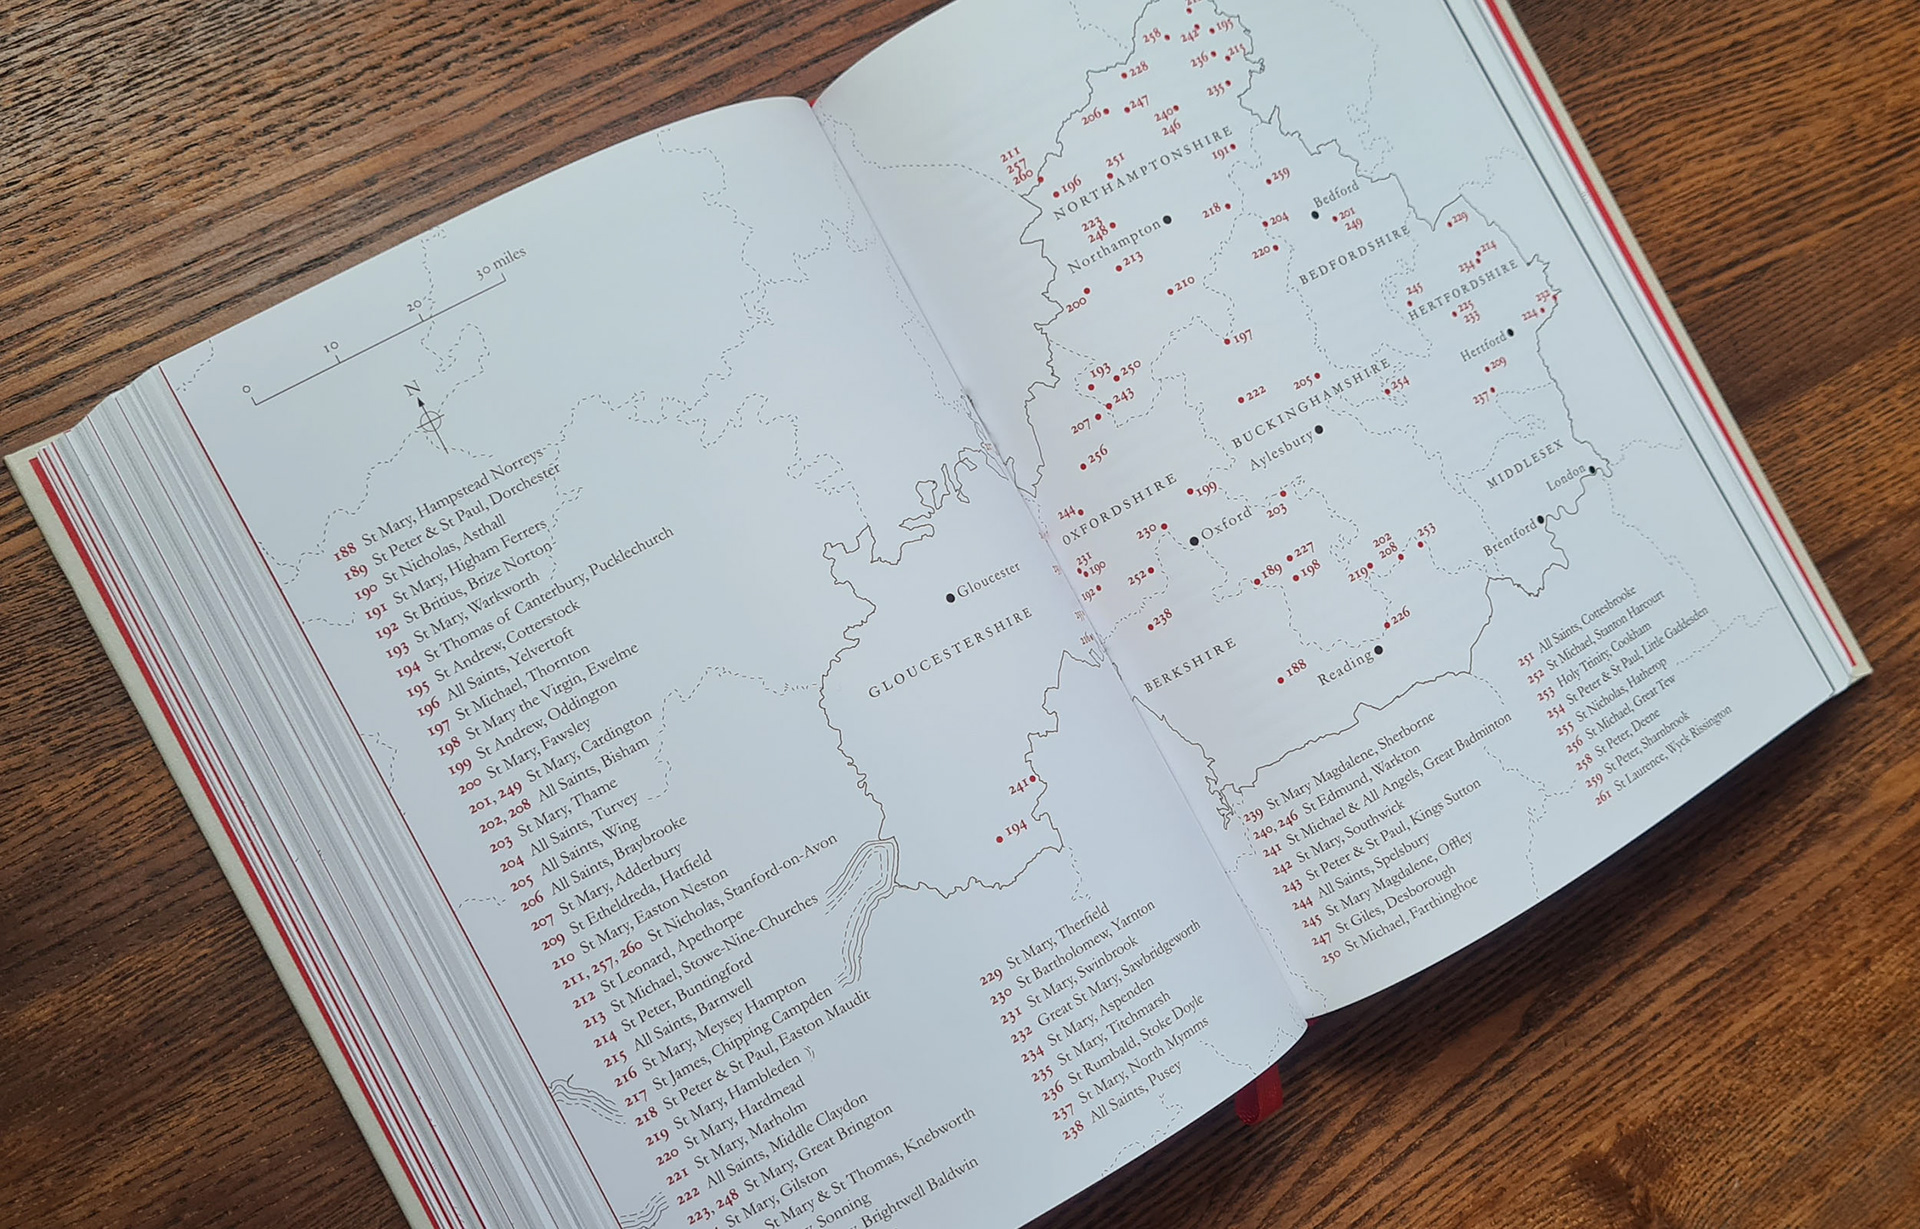 0
10
20
30 miles
N
188 St Mary, Hampstead Norreys
189 St Peter & St Paul, Dorchester
190 St Nicholas, Asthall
191 St Mary, Higham Ferrers
192 St Britius, Brize Norton
193 St Mary, Warkworth
194 St Thomas of Canterbury, Pucklechurch
195 St Andrew, Cotterstock
196 All Saints, Yelvertoft
197 St Michael, Thornton
198 St Mary the Virgin, Ewelme
199 St Andrew, Oddington
200 St Mary, Fawsley
201, 249 St Mary, Cardington
202, 208 All Saints, Bisham
203 St Mary, Thame
204 All Saints, Turvey
205 All Saints, Wing
206 All Saints, Braybrooke
207 St Mary, Adderbury
209 St Etheldreda, Hatfield
210 St Mary, Easton Neston
211, 257, 260 St Nicholas, Stanford-on-Avon
212 St Leonard, Apethorpe
213 St Michael, Stowe-Nine-Churches
214 St Peter, Buntingford
215 All Saints, Barnwell
216 St Mary, Meysey Hampton
217 St James, Chipping Campden
218 St Peter & St Paul, Easton Maudit
219 St Mary, Hambleden
220 St Mary, Hardmead
221 St Mary, Marholm
222 All Saints, Middle Claydon
223, 248 St Mary, Great Brington
St Mary, Gilston
St Mary & St Thomas, Knebworth
Sonning
Brightwell Baldwin
Gloucester
GLOUCESTERSHIRE
241
194
229 St Mary, Therfield
230 St Bartholomew, Yarnton
231 St Mary, Swinbrook
232 Great St Mary, Sawbridgeworth
234 St Mary, Aspenden
235 St Mary, Titchmarsh
236 St Rumbald, Stoke Doyle
237 St Mary, North Mymms
238 All Saints, Pusey
258
242
195
236
215
228
235
206
247
240
246
211
257
260
251
NORTHAMPTONSHIRE
191
196
259
223
248
218
Bedford
204
201
249
229
Northampton
213
220
BEDFORDSHIRE
214
234
200
210
245
HERTFORDSHIRE
225
233
232
224
197
Hertford
193
250
209
243
222
205
254
237
207
BUCKINGHAMSHIRE
256
Aylesbury
MIDDLESEX
London
OXFORDSHIRE
199
244
203
230
Oxford
Brentford
231
190
252
227
202
208
253
189
198
219
192
238
226
BERKSHIRE
188
Reading
239 St Mary Magdalene, Sherborne
240, 246 St Edmund, Warkton
241 St Michael & All Angels, Great Badminton
242 St Mary, Southwick
243 St Peter & St Paul, Kings Sutton
244 All Saints, Spelsbury
245 St Mary Magdalene, Offley
247 St Giles, Desborough
250 St Michael, Farthinghoe
251 All Saints, Cottesbrooke
252 St Michael, Stanton Harcourt
253 Holy Trinity, Cookham
254 St Peter & St Paul, Little Gaddesden
255 St Nicholas, Hatherop
256 St Michael, Great Tew
258 St Peter, Deene
259 St Peter, Sharnbrook
261 St Laurence, Wyck Rissington